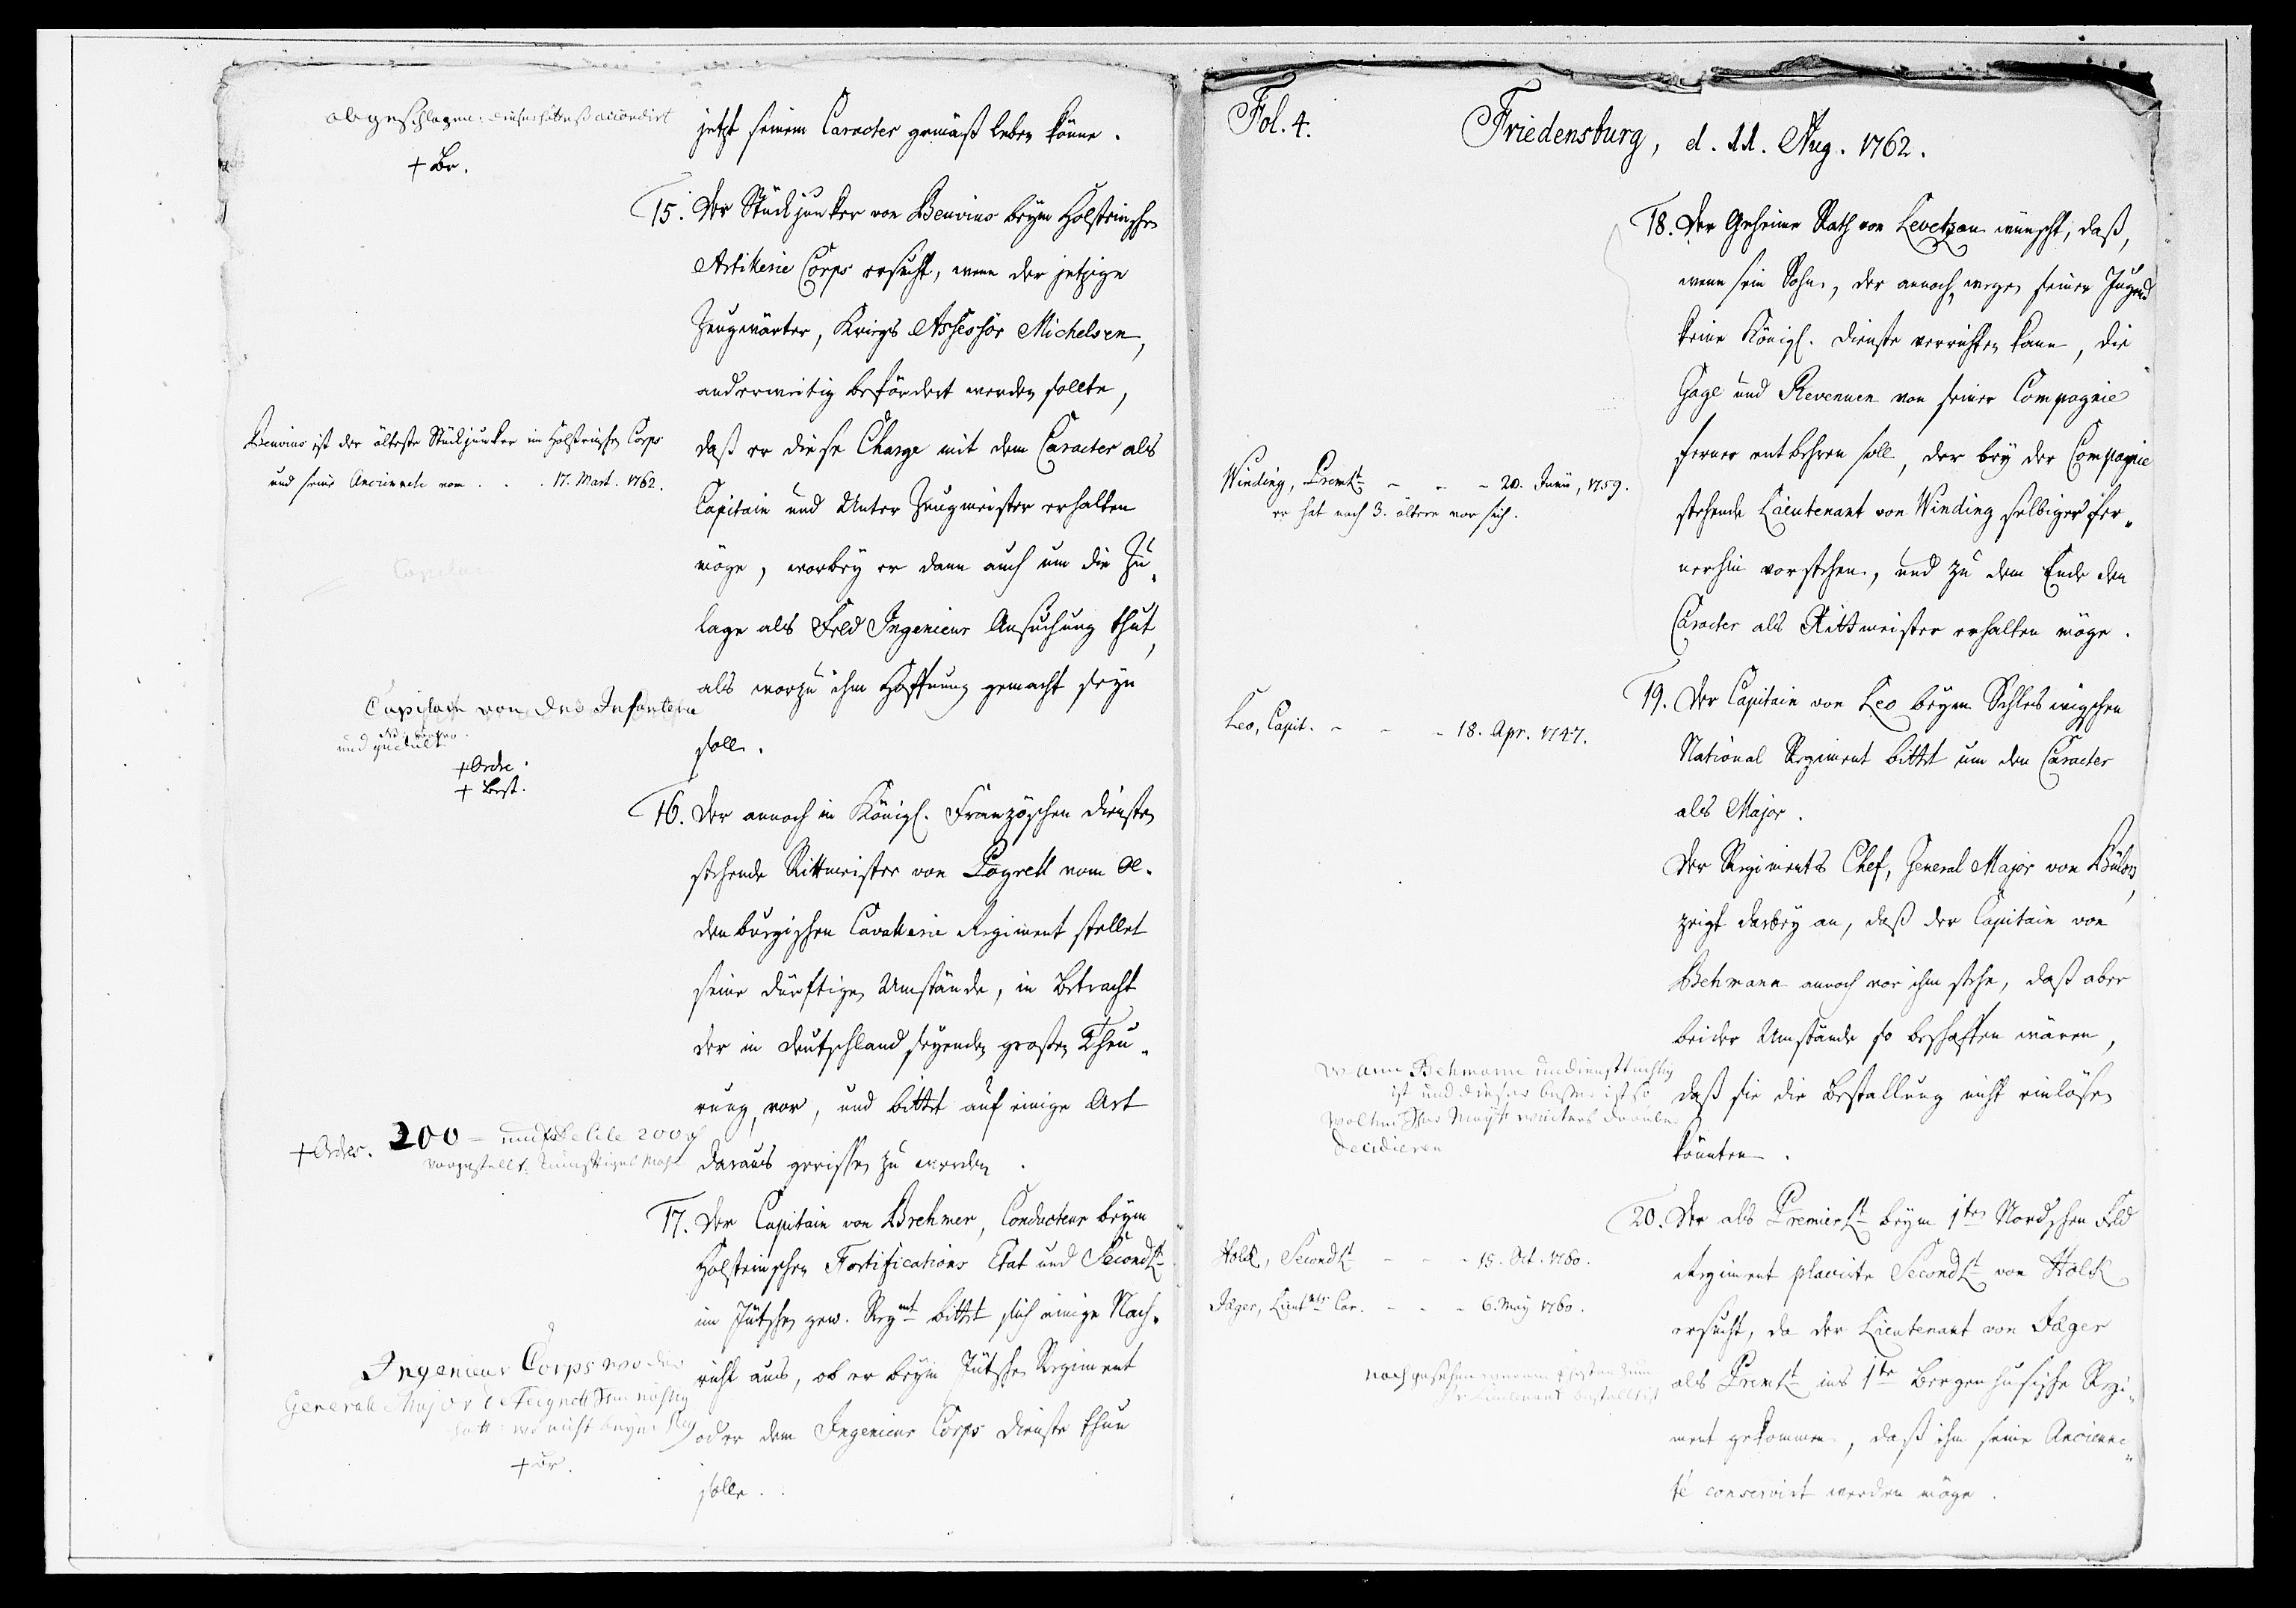 abgeschlagen: accordirt
+ Br.
jetzt seinem Caracter gemäß leben könne.
15. Der Stückjunker von Benvins beym Holsteinschen
Artillerie Corps ersucht, wenn der jetzige
Zeugwärter, Kriegs Assessor Michelsen,
anderweitig befördert werden sollte,
Benvins ist der älteste Stückjunker im Holsteinschen Corps
und seine Anciennete vom . . . 17. Mart. 1762.
daß er diese Charge mit dem Caracter als
Capitain und Unter Zeugmeister erhalten
möge, worbey er dann auch um die Zu„
lage als Feld Ingenieur Ansuchung thut,
als worzu ihm Hoffnung gemacht seyn
soll.
Capitain von der Infanterie
und
+ Ordre.
+ Best.
16. Der annoch in Königl. Französchen Diensten
stehende Rittmeister von Pogrell vom Ol„
denburgischen Cavallerie Regiment stellet
seine dürftigen Umstände, in Betracht
der in Deutschland seyenden großen Theu„
rung, vor, und bittet auf einige Art
daraus gerissen zu werden.
+ Ordre. 200 = und 200
vorgestellt.
17. Der Capitain von Brehmer, Conducteur beym
Holsteinschen Fortifications Etat und Secondlt
im Jütschen gew. Regmt bittet sich einige Nach„
richt aus, ob er beym Jütschen Regiment
oder dem Ingenieur Corps Dienste thun
solle.
Ingenieur Corps wo der
Generale Major nöthig
hatt: wo nicht beym Reg
+ Or.
Fol. 4.
Friedensburg, d. 11. Aug. 1762.
18. Der Geheime Rath von Levetzau wünscht, daß,
wenn sein Sohn, der annoch wegen seiner Jugend
keine Königl. Dienste verrichten kann, die
Gage und Revenuen von seiner Compagnie
ferner entbehren soll, der bey der Compagnie
stehende Lieutenant von Winding selbiger fer„
nerhin vorstehen, und zu dem Ende den
Caracter als Rittmeister erhalten möge.
Winding, Premlt - - - 20. Junii, 1759.
er hat noch 3. ältere vor sich.
19. Der Capitain von Leo beym Schleswigschen
National Regiment bittet um den Caracter
als Major.
Leo, Capit. - - - 18. Apr. 1747.
Der Regiments Chef, General Major von Bülow,
zeigt darbey an, daß der Capitain von
Behmann annoch vor ihm stehe, daß aber
beider Umstände so beschaffen wären,
daß sie die Bestallung nicht einlösen
könnten.
wann Behmann undiensttüchtig
ist und dieser besser ist so
wolten Ihro Mayt weiters darüber
decidieren
20. Der als Premierlt beym 1ten Nordschen Feld
Regiment placirte Secondlt von Holck
ersucht, da der Lieutenant von Jæger
als Premlt ins 1te Bergenhusische Regi„
ment gekommen, daß ihm seine Ancienne„
té conservirt werden möge.
Holck, Secondlt - - - 15. Oct. 1760.
Jæger, Lieutnts Car. - - - 6. May 1760.
nachgesehen
Lieutenant bestellt ist